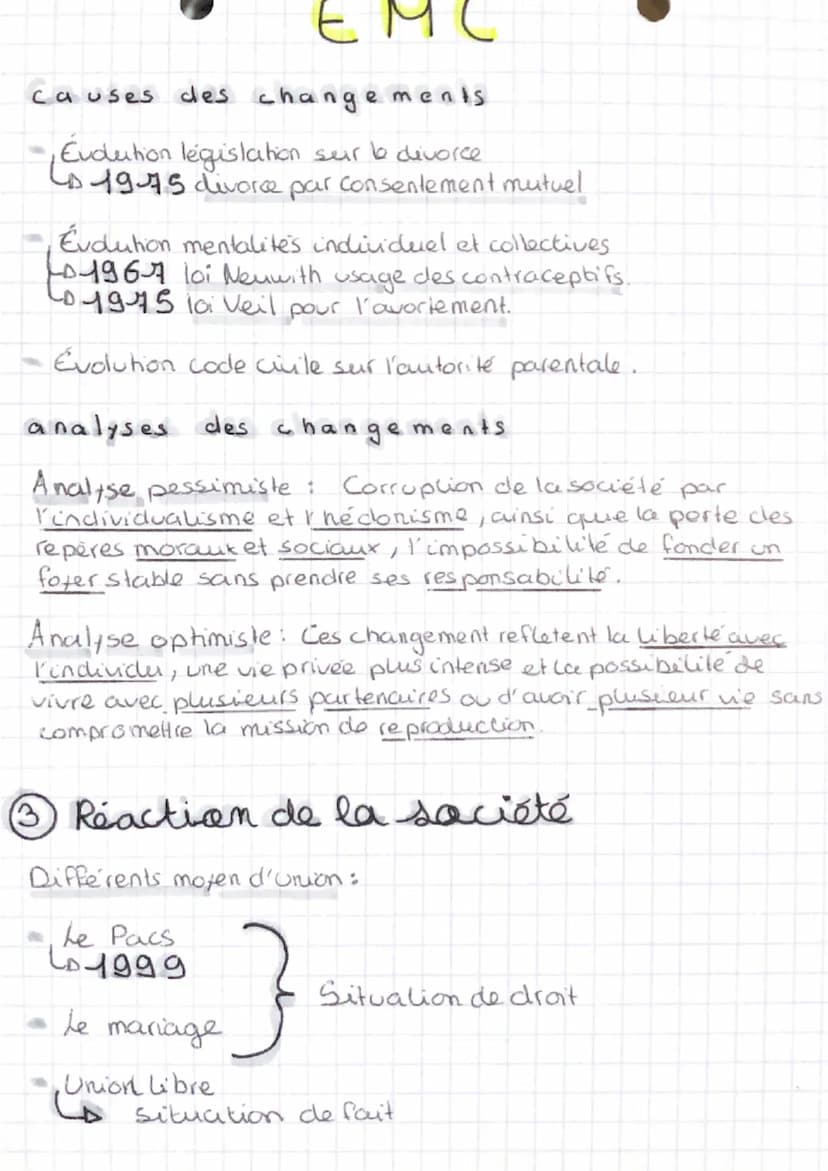 EMC
causes des changements
- Évolution législation sur le divorce
↳ 1975 divorce par consentement mutuel
- Évolution mentalités individuel et collectives
↳ 1967 loi Neuwith usage des contraceptifs.
↳ 1975 loi Veil pour l'avortement.
- Évolution code civile sur l'autorité parentale.
analyses des changements
Analyse pessimiste : Corruption de la société par
l'individualisme et l'hédonisme, ainsi que la perte des
repères moraux et sociaux, l'impossibilité de fonder un
foyer stable sans prendre ses responsabilité.
Analyse optimiste : Ces changement refletent la liberté avec
l'individu, une vie privée plus intense et la possibilité de
vivre avec plusieurs partenaires ou d'avoir plusieur vie sans
compromettre la mission de reproduction.
③ Réaction de la société
Différents moyen d'union :
- Le Pacs
↳ 1999
- Le mariage
Situation de droit
- Union Libre
↳ situation de fait